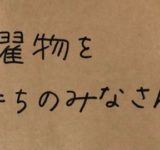 濯物を
ちのみなさん